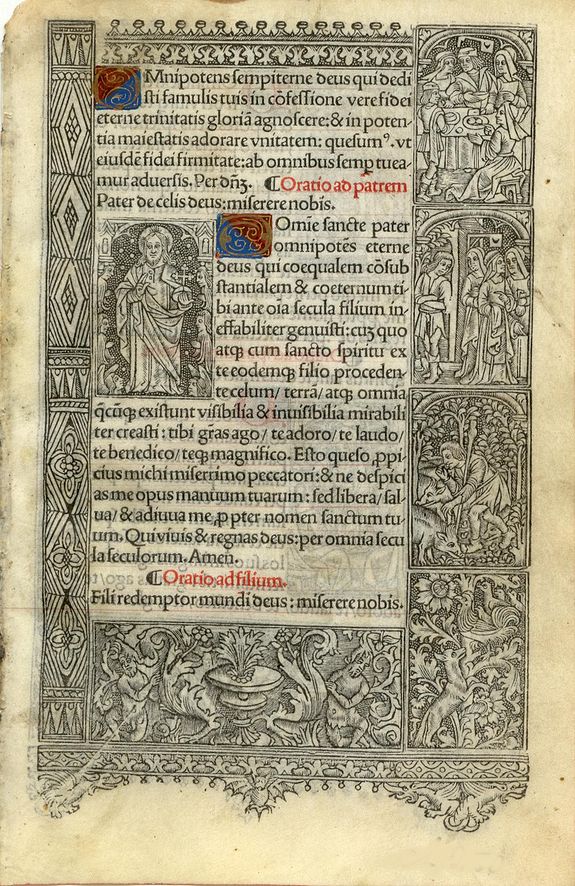 OMnipotens sempiterne deus qui dedi
sti famulis tuis in cõfessione vere fidei
eterne trinitatis gloriã agnoscere: & in poten
tia maiestatis adorare vnitatem: quesumꝰ. vt
eiusdē fidei firmitate: ab omnibus semp tuea⸗
mur aduersis. Per dñꝫ. ¶Oratio ad patrem
Pater de celis deus: miserere nobis.
DOmīe sancte pater
omnipotēs eterne
deus qui coequalem cõsub
stantialem & coeternum ti⸗
bi ante oīa secula filium in⸗
effabiliter genuisti: cuꝫ quo
atqꝫ cum sancto spiritu ex
te eodemqꝫ filio proceden⸗
te celum/ terrã/ atqꝫ omnia
q̄cũqꝫ existunt visibilia & inuisibilia mirabili
ter creasti: tibi grās ago/ te adoro/ te laudo/
te benedico/ teqꝫ magnifico. Esto queso ꝓpi
cius michi miserrimo peccatori: & ne despici
as me opus manuum tuarum: sed libera/ sal
ua/ & adiuua me ꝓpter nomen sanctum tu⸗
um. Qui viuis & regnas deus: per omnia secu
la seculorum. Amen̄.
¶Oratio ad filium.
Fili redemptor mundi deus: miserere nobis.